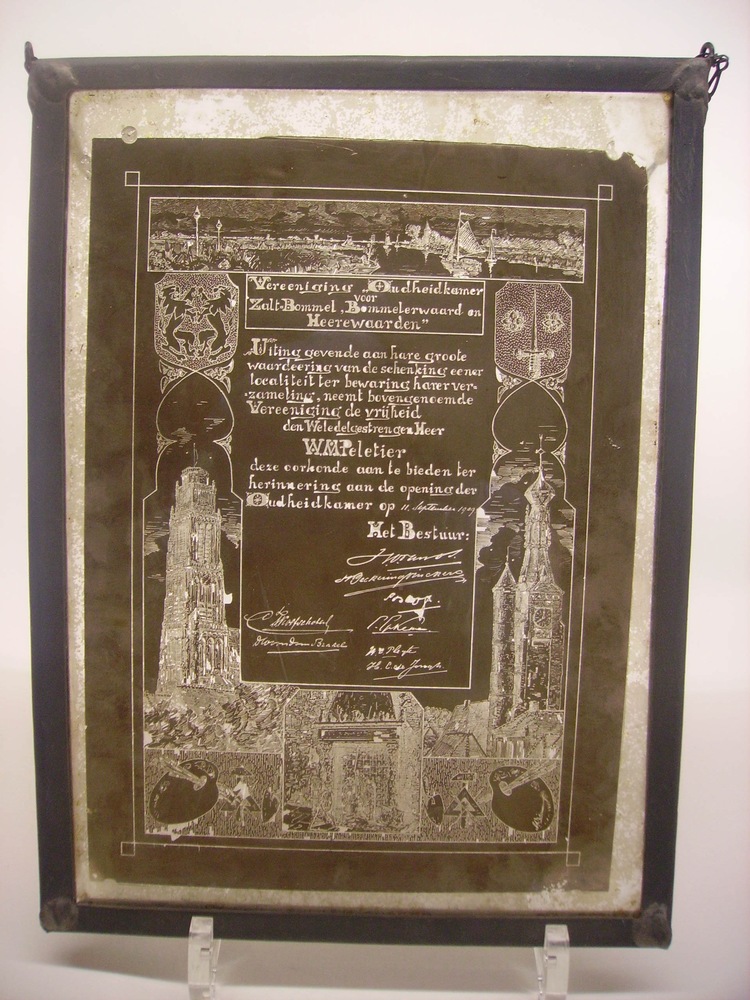 Vereeniging „Oudheidkamer
voor
Zalt-Bommel, Bommelerwaard en
Heerewaarden”
„Uiting gevende aan hare groote
waardeering van de schenking eener
localiteit ter bewaring harer ver-
-zameling, neemt bovengenoemde
Vereeniging de vrijheid
den Weledelgestrengen Heer
W.M.Peletier
deze oorkonde aan te bieden ter
herinnering aan de opening der
Oudheidkamer op 11 September
Het Bestuur:
H. C. de Jongh